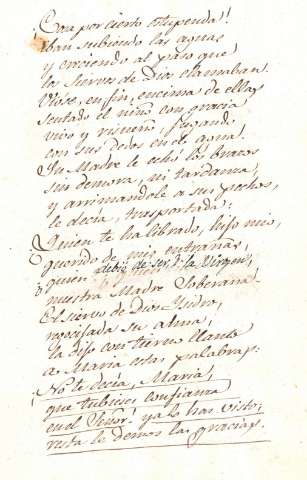 ¡Cosa por cierto estupenda!
iban subiendo las aguas
y creciendo al paso que
los siervos de Dios clamaban.
Vióse, en fin, encima de ellas
sentado el niño con gracia
vivo y risueño, jugando
con sus dedos en el agua.
Su Madre le echó los brazos
sin demora, ni tardanza,
y arrimandole a sus pechos,
le decía, trasportada:
Quien te ha librado, hijo mio,
querido de mis entrañas,
quien debió de ser, d. la Virgen,
nuestra Madre Soberana.
El siervo de Dios Ysidro,
regocijada su alma,
la dijo con tierno llanto
a María estas palabras:
¡No te decía, María,
que tubieses confianza
en el Señor! ya lo has visto,
resta le demos las gracias.